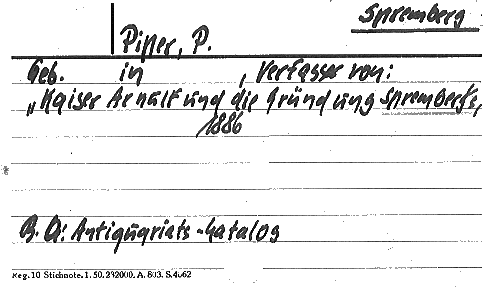 Spremberg
Piper, P.
Geb. in , Verfasser von:
„Kaiser Arnulf und die Gründung Spremberg's,
1886
B. A: Antiquariats-Katalog
Reg. 10 Stichnote. 1. 50. 232000. A. 803. S. 4062